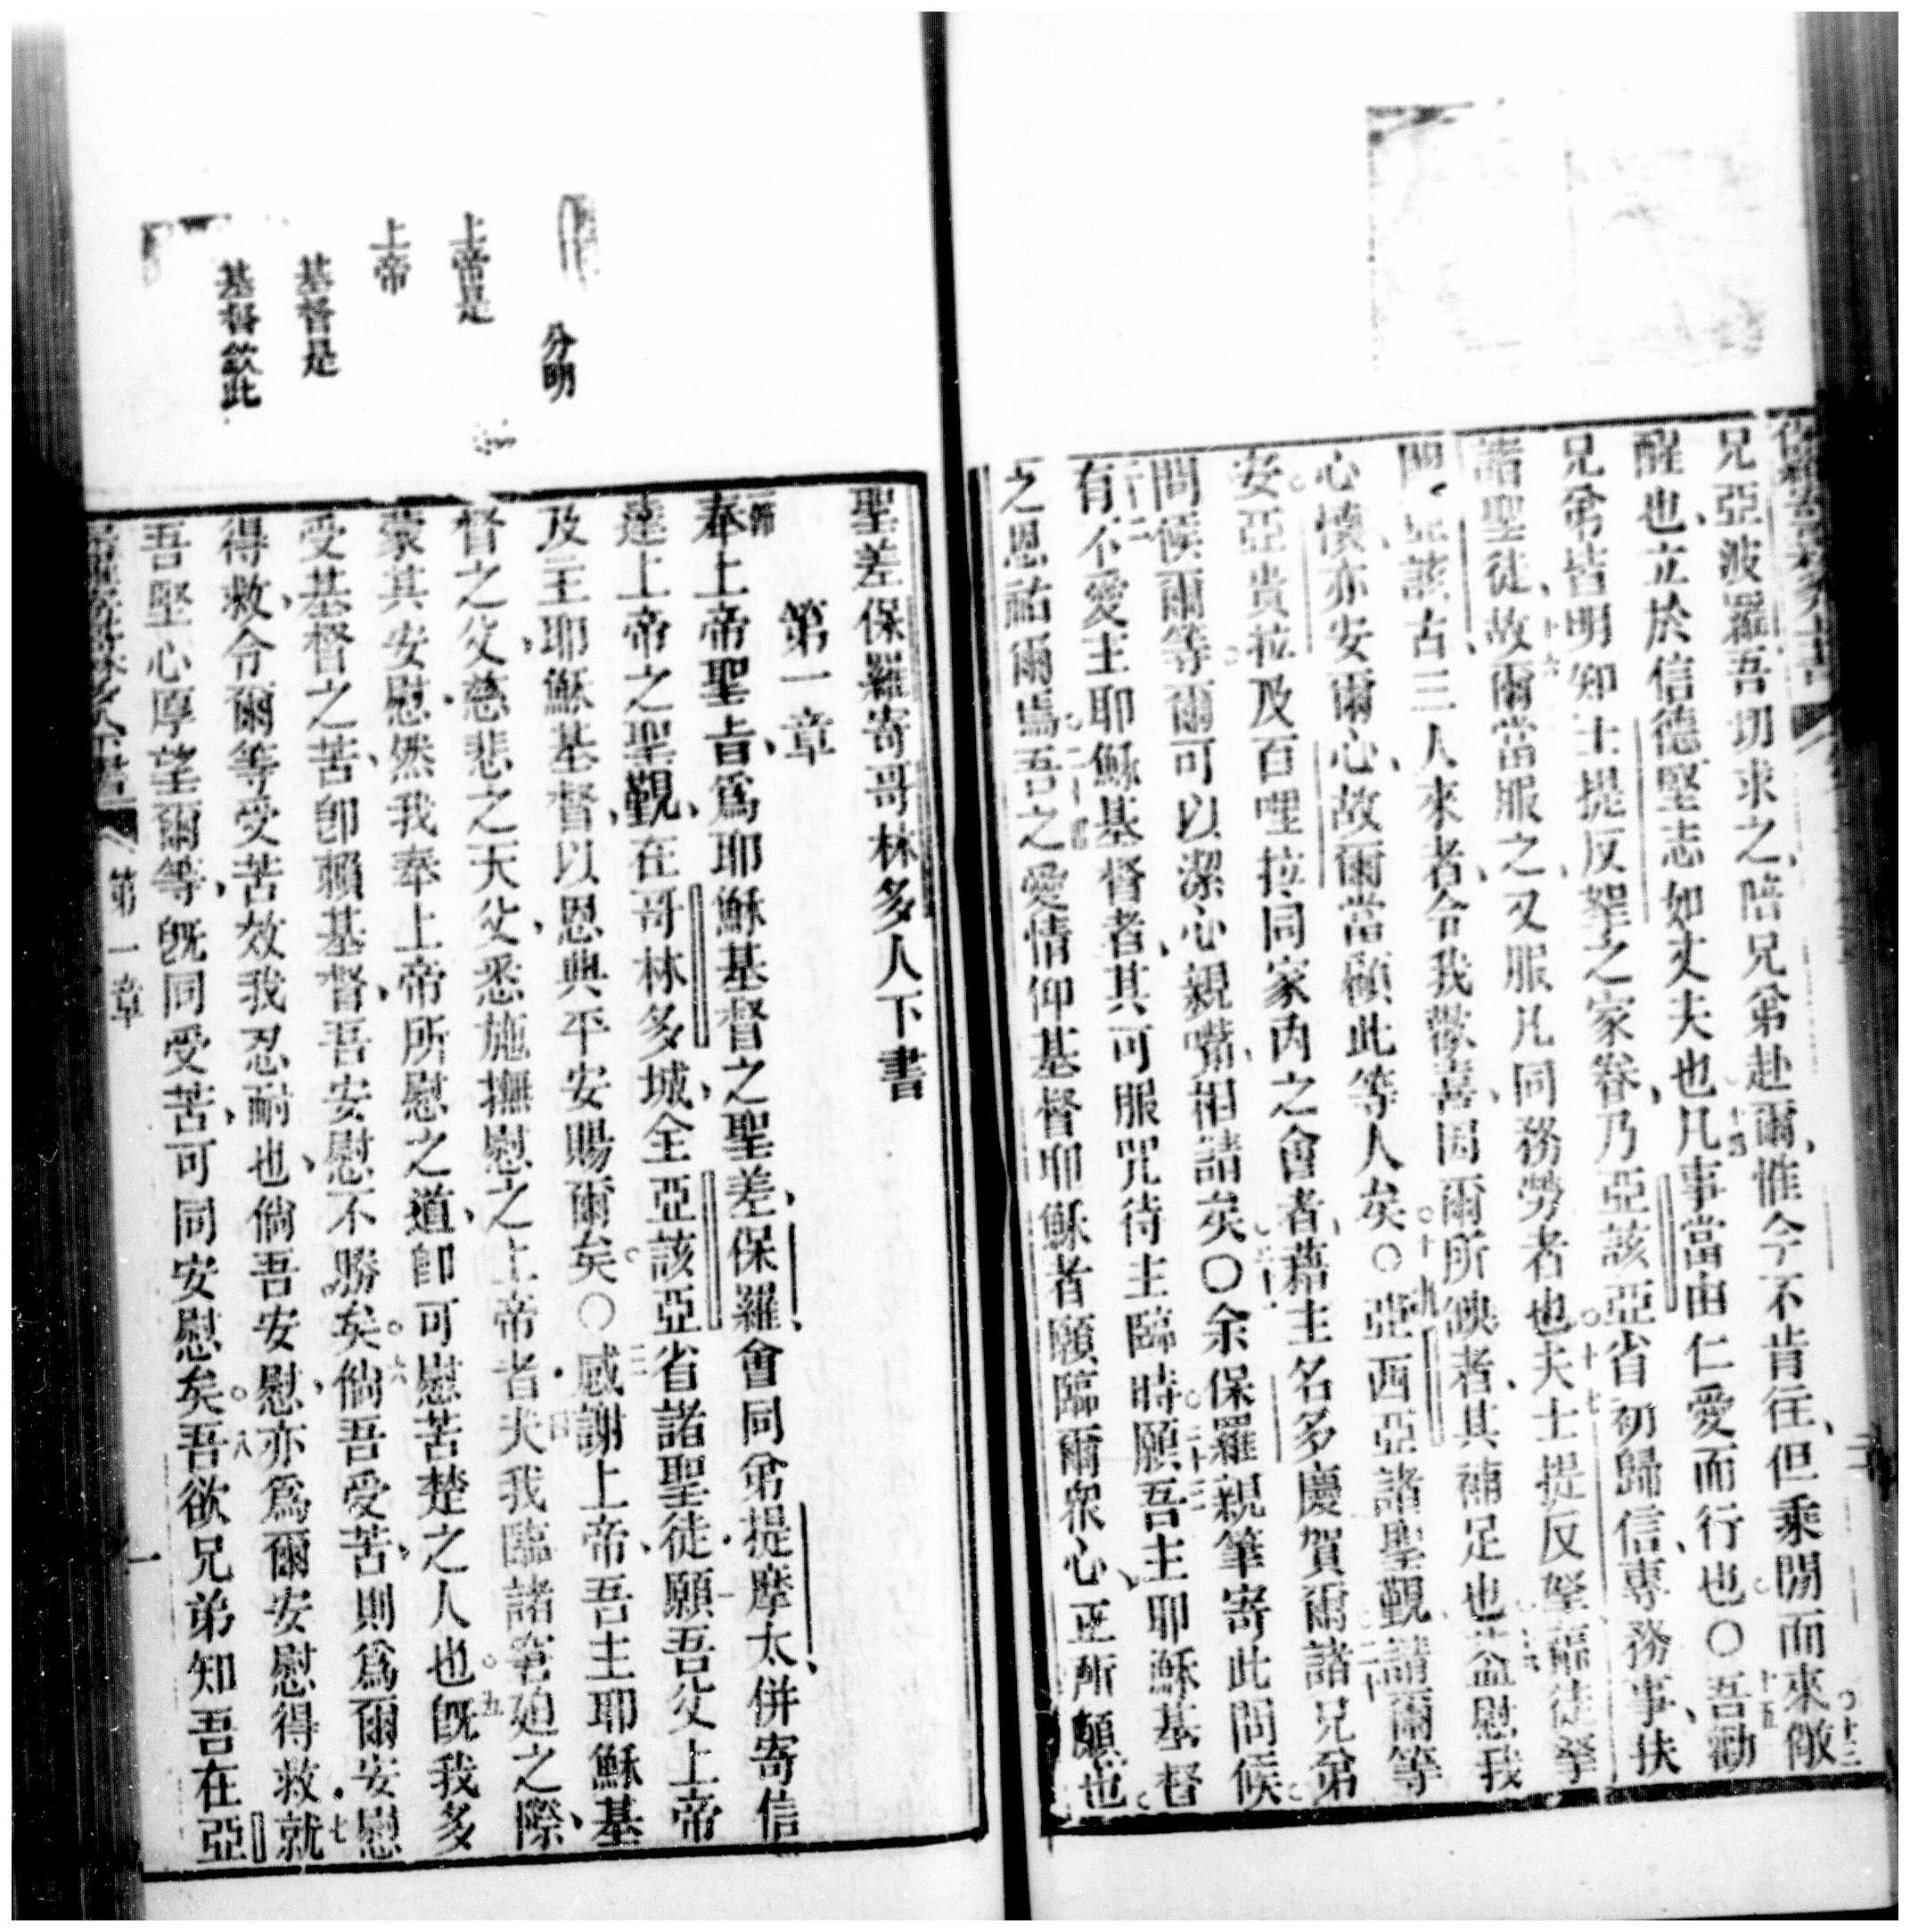 兄亞波羅吾切求之、陪兄弟赴爾、惟今不肯往、但乘閒而來○十三儆
醒也、立於信德堅志如丈夫也○十四凡事當由仁愛而行也○十五吾勸
兄弟皆明知士提反拏之家眷、乃亞該亞省初歸信、專務事、扶
諸聖徒、十六故爾當服之、又服凡同務勞者也○十七夫士提反拏福徒拏
亞該古三人來者、令我歡喜、因爾所缺者、其補足也○益慰我
心懷、亦安爾心、故爾當顧此等人矣○十九亞西亞諸聖覲、請爾等
安○亞貴拉及百哩拉同家內之會者、藉主名多慶賀爾○二十諸兄弟
問候爾等○爾可以潔心親嘴、相請矣○二十一余保羅親筆寄此問候
○二十二有不愛主耶穌基督者、其可服咒待主臨時○二十三願吾主耶穌基督
之恩祐爾焉○二十四吾之愛情仰基督耶穌者願臨爾眾心、正所願也
分明
上帝是
上帝
基督是
基督欽此
聖差保羅寄哥林多人下書
第一章
一節奉上帝聖旨、爲耶穌基督之聖差、保羅、會同弟提摩太、併寄信
達上帝之聖覲、在哥林多城、全亞該亞省諸聖徒○二願吾父上帝
及主耶穌基督、以恩典平安賜爾矣○○三感謝上帝、吾主耶穌基
督之父、慈悲之天父、悉施撫慰之上帝者○四夫我臨諸窘廹之際、
蒙其安慰、然我奉上帝所慰之道、卽可慰苦楚之人也○五旣我多
受基督之苦、卽賴基督、吾安慰不勝矣○六倘吾受苦、則爲爾安慰
得救、令爾等受苦效我忍耐也、倘吾安慰、亦爲爾安慰得救○七就
吾堅心厚望爾等、旣同受苦、可同安慰矣○八吾欲兄弟知吾在亞
第一章
一